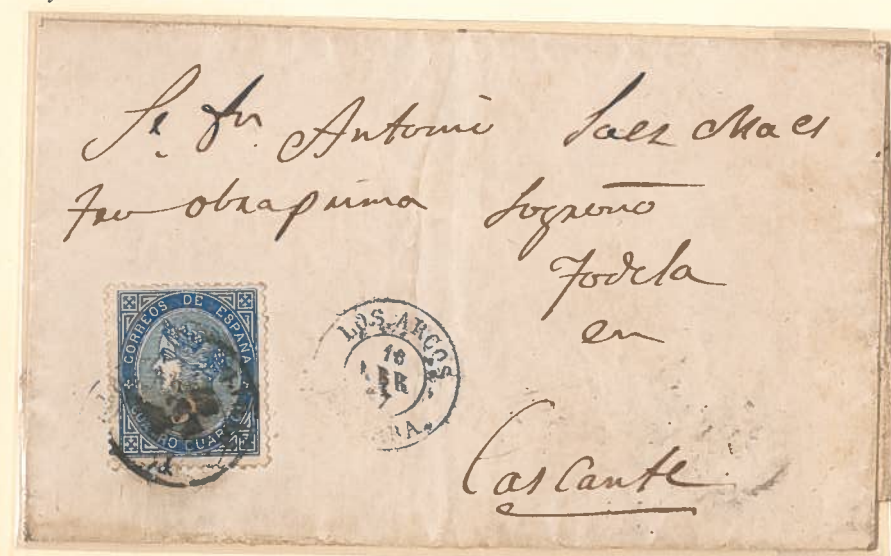 Sr. Dn. Antonio Saez Maes
tro obraprima Logroño
Todela
en
Cascante
CORREOS DE ESPAÑA
CUATRO CUARTOS
LOS ARCOS
16
ABR